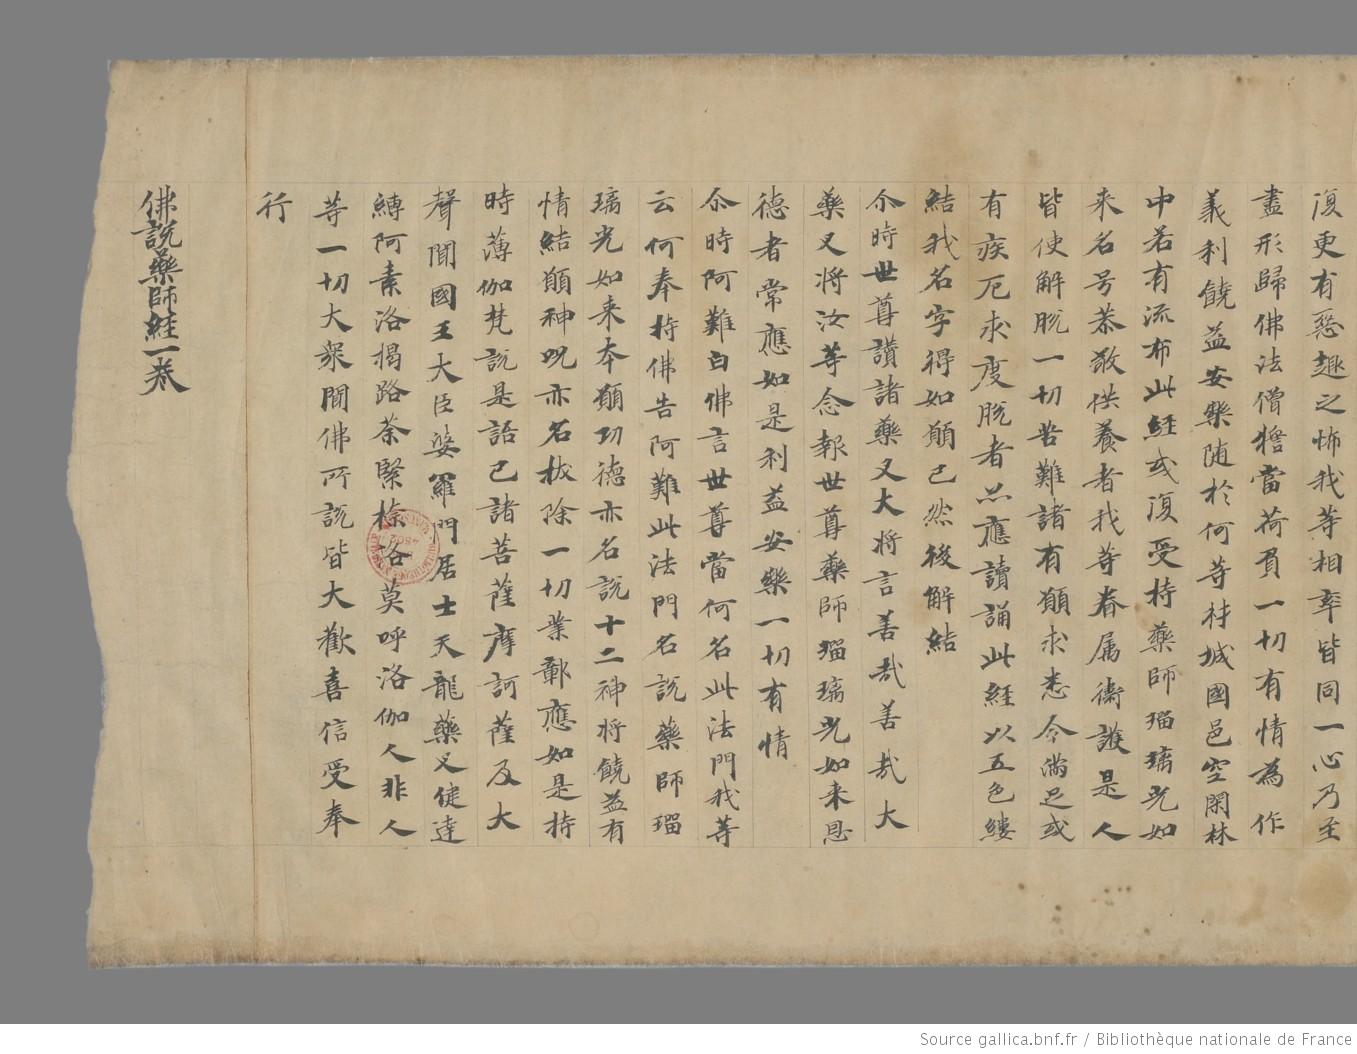 復更有惡趣之怖我等相率皆同一心乃至
盡形歸佛法僧擔當荷負一切有情為作
義利饒益安樂随於何等村城國邑空閑林
中若有流布此経或復受持藥師瑠璃光如
来名号恭敬供養者我等眷属衛護是人
皆使解脫一切苦難諸有願求悉令滿足或
有疾厄求度脫者亦應讀誦此経以五色縷
結我名字得如願已然後解結
尒時世尊讃諸藥叉大將言善哉善哉大
藥叉將汝等念報世尊藥師瑠璃光如来恩
德者常應如是利益安樂一切有情
尒時阿難白佛言世尊當何名此法門我等
云何奉持佛告阿難此法門名說藥師瑠
璃光如来本願功德亦名說十二神將饒益有
情結願神呪亦名拔除一切業鄣應如是持
時薄伽梵說是語已諸菩薩摩訶薩及大
聲聞國王大臣婆羅門居士天龍藥叉健達
縛阿素洛揭路荼緊捺洛莫呼洛伽人非人
等一切大衆聞佛所說皆大歡喜信受奉
行
佛說藥師経一卷
Source gallica.bnf.fr / Bibliothèque nationale de France